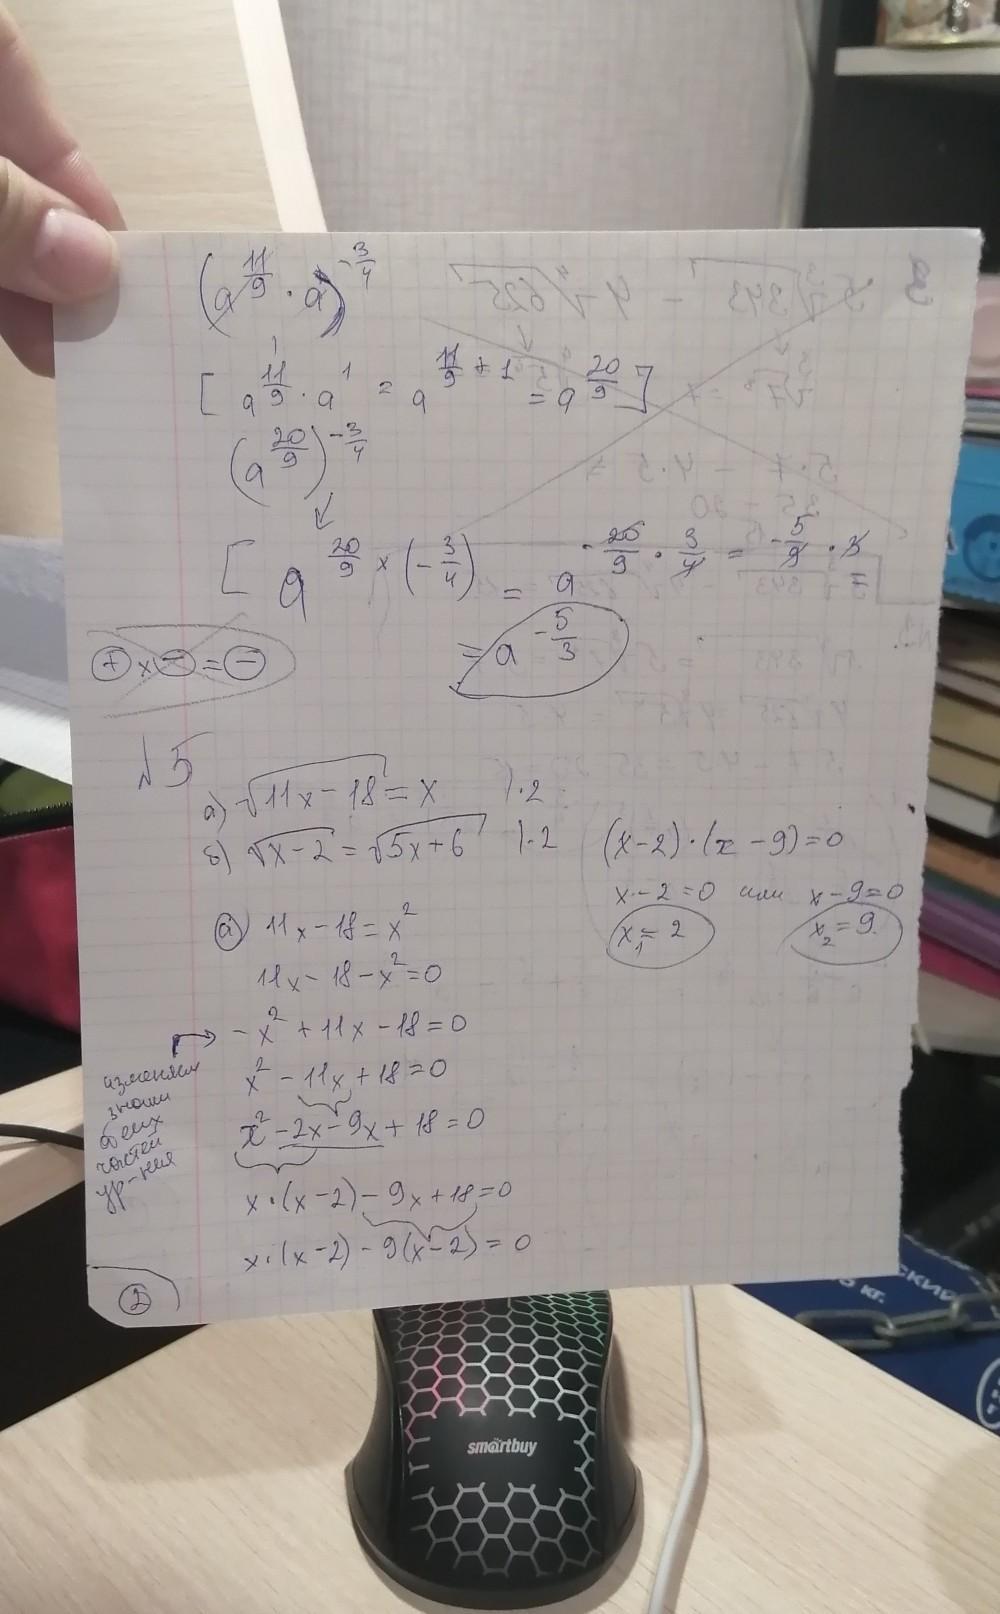 (a^{11/9} · a)^{-3/4}
[ a^{11/9} · a^1 = a^{11/9 + 1} = a^{20/9} ]
(a^{20/9})^{-3/4}
[ a^{20/9 × (-3/4)} = a^{-20/9 · 3/4} = -5/9 · 3 =
= a^{-5/3}
+ × - = -
№5
а) √(11x - 18) = x |·2
б) √(x - 2) = √(5x + 6) |·2
а) 11x - 18 = x²
11x - 18 - x² = 0
- x² + 11x - 18 = 0
изменяем знаки обеих частей ур-ния
x² - 11x + 18 = 0
x² - 2x - 9x + 18 = 0
x · (x - 2) - 9x + 18 = 0
x · (x - 2) - 9(x - 2) = 0
(x - 2) · (x - 9) = 0
x - 2 = 0 или x - 9 = 0
x₁ = 2 x₂ = 9.
2
smartbuy
СКИЙ
кг.